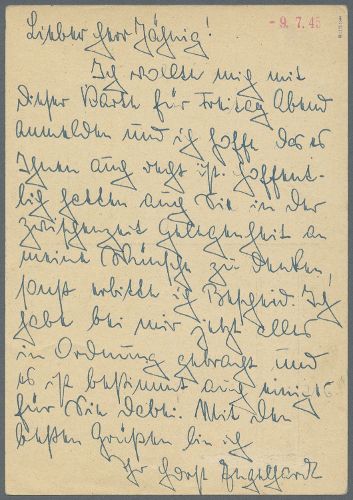 - 9. 7. 45
Lieber Herr Jähnig!
Ich wollte mich mit
dieser Karte für Freitag Abend
anmelden und ich hoffe das es
Ihnen auch recht ist. Hoffent-
lich hatten auch Sie in der
Zwischenzeit Gelegenheit an
meine Wünsche zu denken,
sonst erbitte ich Bescheid. Ich
habe bei mir jetzt alles
in Ordnung gebracht und
es ist bestimmt auch einiges
für Sie dabei. Mit den
besten Grüßen bin ich
Ihr Horst Engelhardt